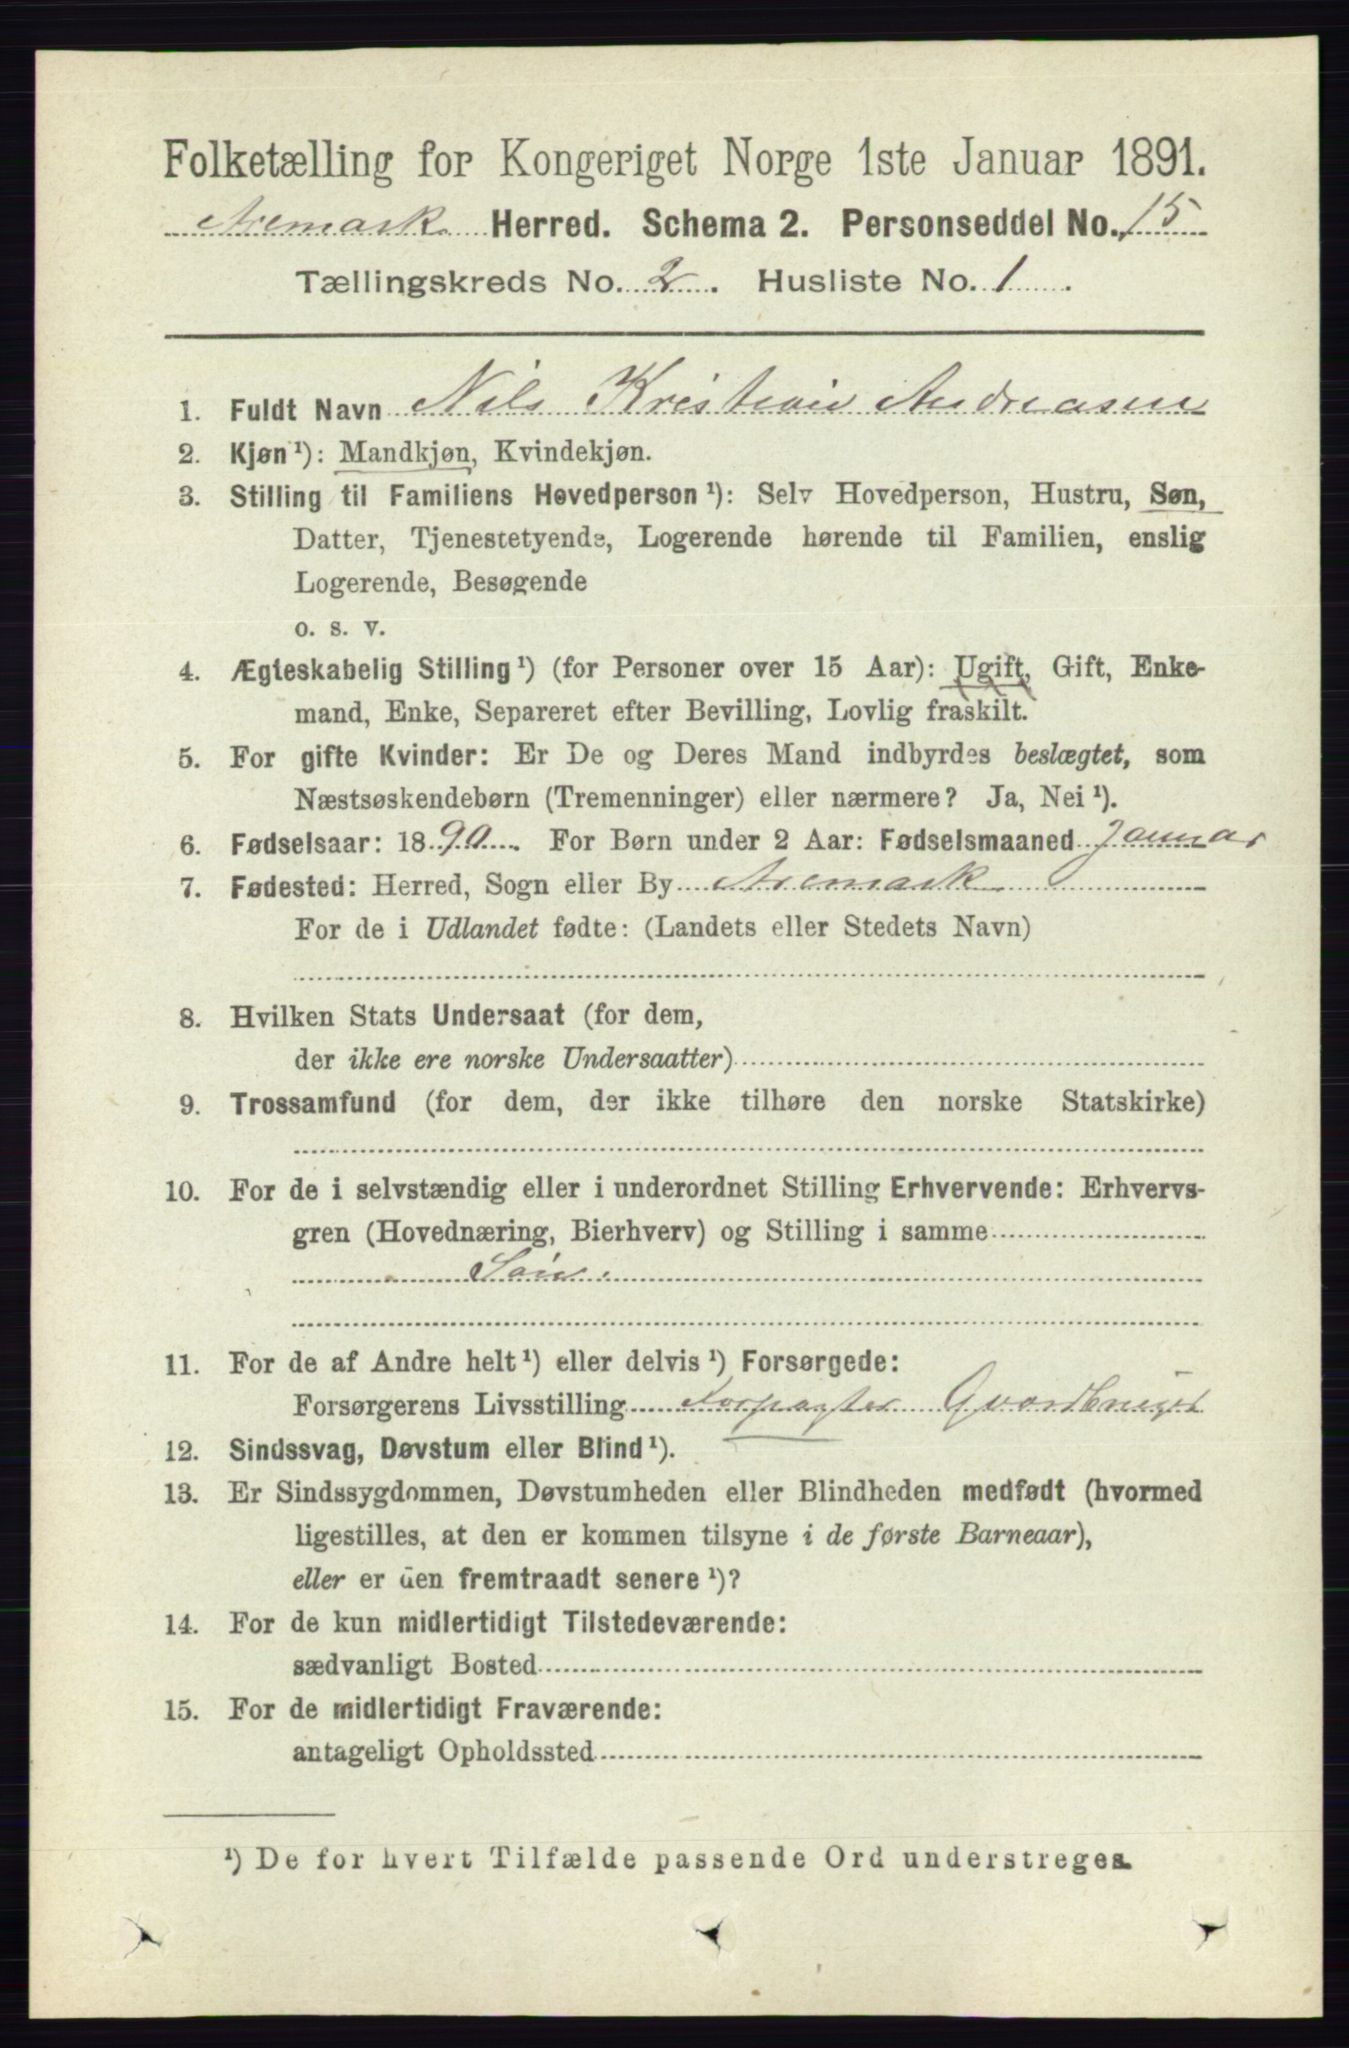 Folketælling for Kongeriget Norge 1ste Januar 1891.
Aremark Herred. Schema 2. Personseddel No. 15
Tællingskreds No. 2. Husliste No. 1.
1. Fuldt Navn Nils Kristian Andreasen
2. Kjøn¹): Mandkjøn, Kvindekjøn.
3. Stilling til Familiens Hovedperson¹): Selv Hovedperson, Hustru, Søn,
Datter, Tjenestetyende, Logerende hørende til Familien, enslig
Logerende, Besøgende
o. s. v.
4. Ægteskabelig Stilling¹) (for Personer over 15 Aar): Ugift, Gift, Enke-
mand, Enke, Separeret efter Bevilling, Lovlig fraskilt.
5. For gifte Kvinder: Er De og Deres Mand indbyrdes beslægtet, som
Næstsøskendebørn (Tremenninger) eller nærmere? Ja, Nei¹).
6. Fødselsaar: 1890. For Børn under 2 Aar: Fødselsmaaned Januar
7. Fødested: Herred, Sogn eller By Aremark
For de i Udlandet fødte: (Landets eller Stedets Navn)
8. Hvilken Stats Undersaat (for dem,
der ikke ere norske Undersaatter)
9. Trossamfund (for dem, der ikke tilhøre den norske Statskirke)
10. For de i selvstændig eller i underordnet Stilling Erhvervende: Erhvervs-
gren (Hovednæring, Bierhverv) og Stilling i samme
Søn.
11. For de af Andre helt¹) eller delvis¹) Forsørgede:
Forsørgerens Livsstilling Forpagter
12. Sindssvag, Døvstum eller Blind¹).
13. Er Sindssygdommen, Døvstumheden eller Blindheden medfødt (hvormed
ligestilles, at den er kommen tilsyne i de første Barneaar),
eller er den fremtraadt senere¹)?
14. For de kun midlertidigt Tilstedeværende:
sædvanligt Bosted
15. For de midlertidigt Fraværende:
antageligt Opholdssted
¹) De for hvert Tilfælde passende Ord understreges.